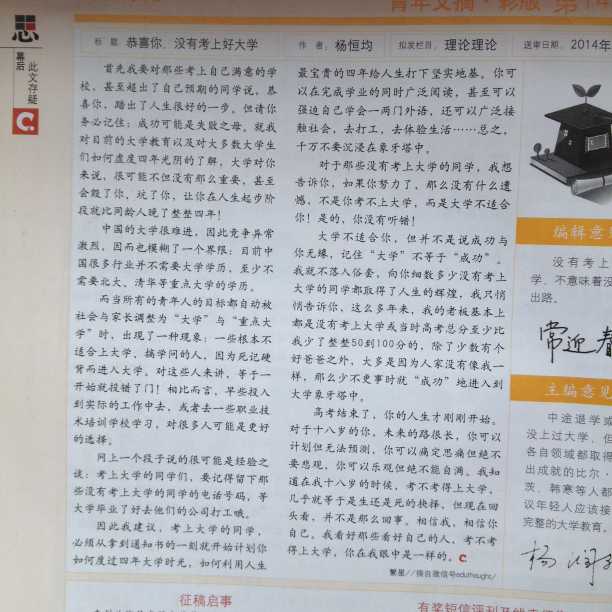 青年文摘·彩版
思
幕后
此文存疑
标 题 恭喜你，没有考上好大学
作 者：杨恒均
拟发栏目：理论理论
送审日期：2014年
首先我要对那些考上自己满意的学
校，甚至超出了自己预期的同学说，恭
喜你，踏出了人生很好的一步。但请你
务必记住：成功可能是失败之母。就我
对目前的大学教育以及对大多数大学生
们如何虚度四年光阴的了解，大学对你
来说，很可能不但没有那么重要，甚至
会毁了你，坑了你，让你在人生起步阶
段就比同龄人晚了整整四年！
中国的大学很难进，因此竞争异常
激烈，因而也模糊了一个界限：目前中
国很多行业并不需要大学学历，至少不
需要北大、清华等重点大学的学历。
而当所有的青年人的目标都自动被
社会与家长调整为“大学”与“重点大
学”时，出现了一种现象：一些根本不
适合上大学，搞学问的人，因为死记硬
背而进入大学，对这些人来讲，等于一
开始就投错了门！相比而言，早些投入
到实际的工作中去，或者去一些职业技
术培训学校学习，对很多人可能是更好
的选择。
网上一个段子说的很可能是经验之
谈：考上大学的同学们，要记得留下那
些没有考上大学的同学的电话号码，等
大学毕业了好去他们的公司打工哦。
因此我建议，考上大学的同学，
必须从拿到通知书的一刻就开始计划你
如何度过四年大学时光，如何利用人生
最宝贵的四年给人生打下坚实地基。你可
以在完成学业的同时广泛阅读，甚至可以
强迫自己学会一两门外语，还可以广泛接
触社会，去打工，去体验生活……总之，
千万不要沉浸在象牙塔中。
对于那些没有考上大学的同学，我想
告诉你，如果你努力了，那么没有什么遗
憾，不是你考不上大学，而是大学不适合
你！是的，你没有听错！
大学不适合你，但并不是说成功与
你无缘，记住“大学”不等于“成功”。
我就不落入俗套，向你细数多少没有考上
大学的同学都取得了人生的辉煌，我只悄
悄告诉你，这么多年来，我的老板基本上
都是没有考上大学或当时高考总分至少比
我少了整整50到100分的，除了少数有个
好爸爸之外，大多是因为人家没有像我一
样，那么少不更事时就“成功”地进入到
大学象牙塔中。
高考结束了，你的人生才刚刚开始。
对于十八岁的你，未来的路很长，你可以
计划但无法预测，你可以痛定思痛但绝不
要悲观，你可以乐观但绝不能自满。我知
道在我十八岁的时候，考不考得上大学，
几乎就等于是生还是死的抉择，但现在回
头看，并不是那么回事。相信我，相信你
自己。我看好那些看好自己的人，考不考
得上大学，你在我眼中是一样的。
繁星//摘自微信号eduthought/
编辑意见
没有考上
学，不意味着没
出路。
常迎春
主编意见
中途退学或
没上过大学，但
各自领域都取得
出成就的比尔·
茨、韩寒等人都
议年轻人应该接
完整的大学教育。
征稿启事